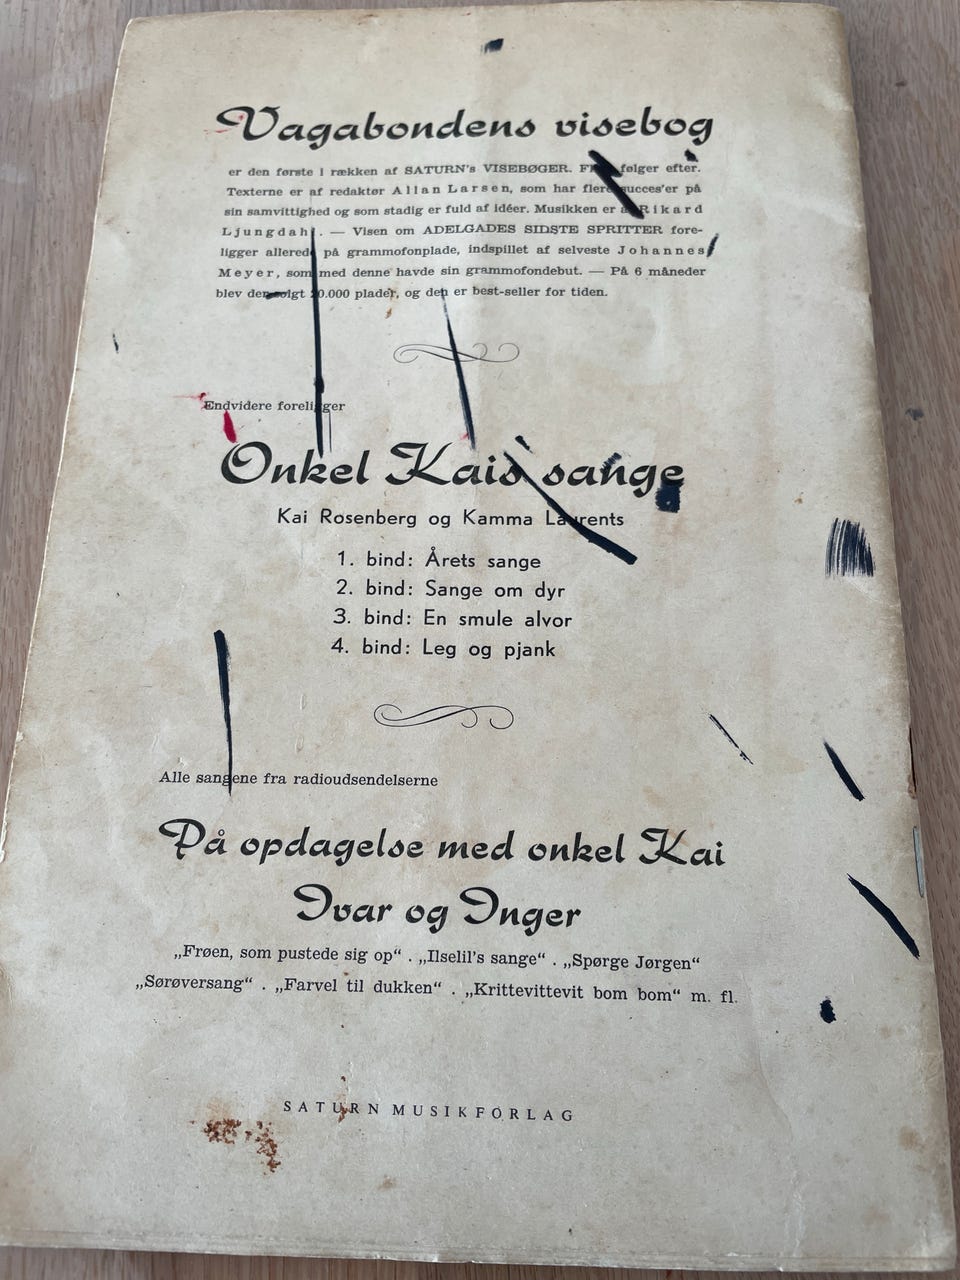 Vagabondens visebog
er den første i rækken af SATURN's VISEBØGER. følger efter.
Texterne er af redaktør Allan Larsen, som har flere succes'er på
sin samvittighed og som stadig er fuld af idéer. Musikken er af Rikard
Ljungdahl. — Visen om ADELGADES SIDSTE SPRITTER fore-
ligger allerede på grammofonplade, indspillet af selveste Johannes
Meyer, som med denne havde sin grammofondebut. — På 6 måneder
blev der solgt 20.000 plader, og den er best-seller for tiden.
Endvidere foreligger
Onkel Kais sange
Kai Rosenberg og Kamma Laurents
1. bind: Årets sange
2. bind: Sange om dyr
3. bind: En smule alvor
4. bind: Leg og pjank
Alle sangene fra radioudsendelserne
På opdagelse med onkel Kai
Ivar og Inger
„Frøen, som pustede sig op“ . „Ilselil's sange“ . „Spørge Jørgen“
„Sørøversang“ . „Farvel til dukken“ . „Krittevittevit bom bom“ m. fl.
SATURN MUSIKFORLAG